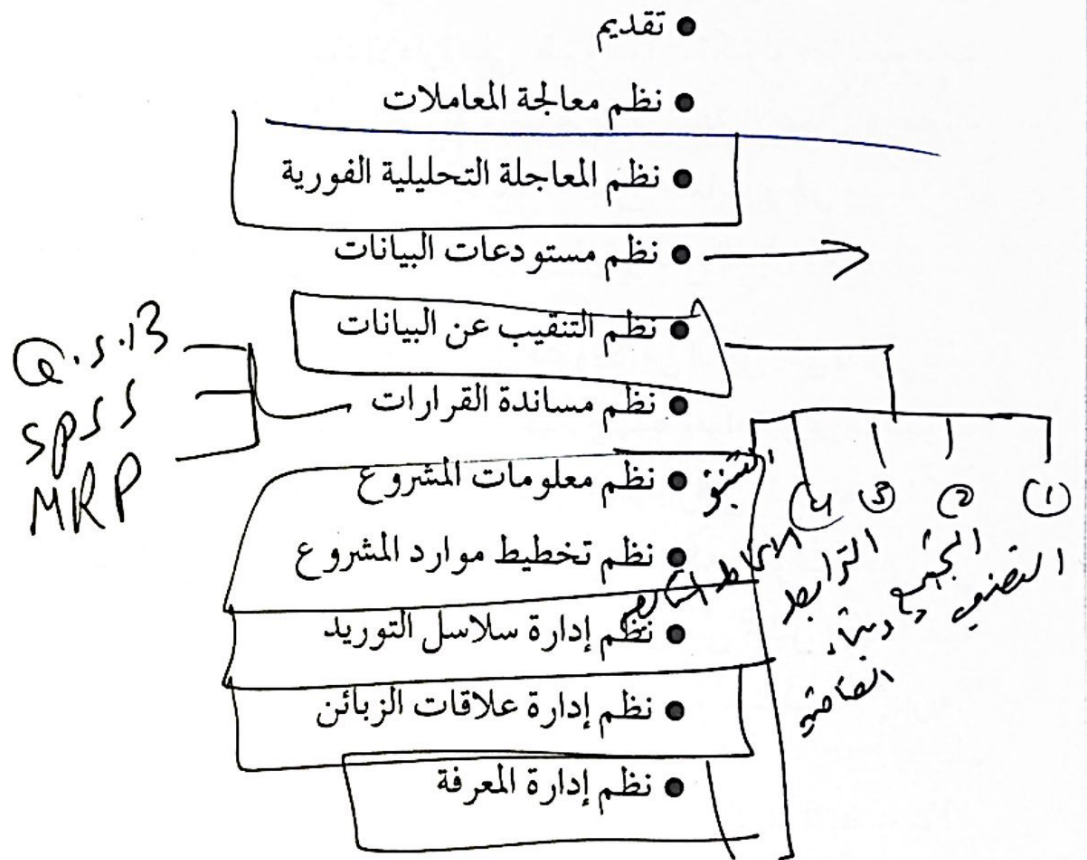 ● تقديم
● نظم معالجة المعاملات
● نظم المعاجلة التحليلية الفورية
● نظم مستودعات البيانات
● نظم التنقيب عن البيانات
● نظم مساندة القرارات
● نظم معلومات المشروع
● نظم تخطيط موارد المشروع
● نظم إدارة سلاسل التوريد
● نظم إدارة علاقات الزبائن
● نظم إدارة المعرفة
Q.S.B
spss
MRP
(1)
التصنيف
(2)
(3)
الترابط
(4)